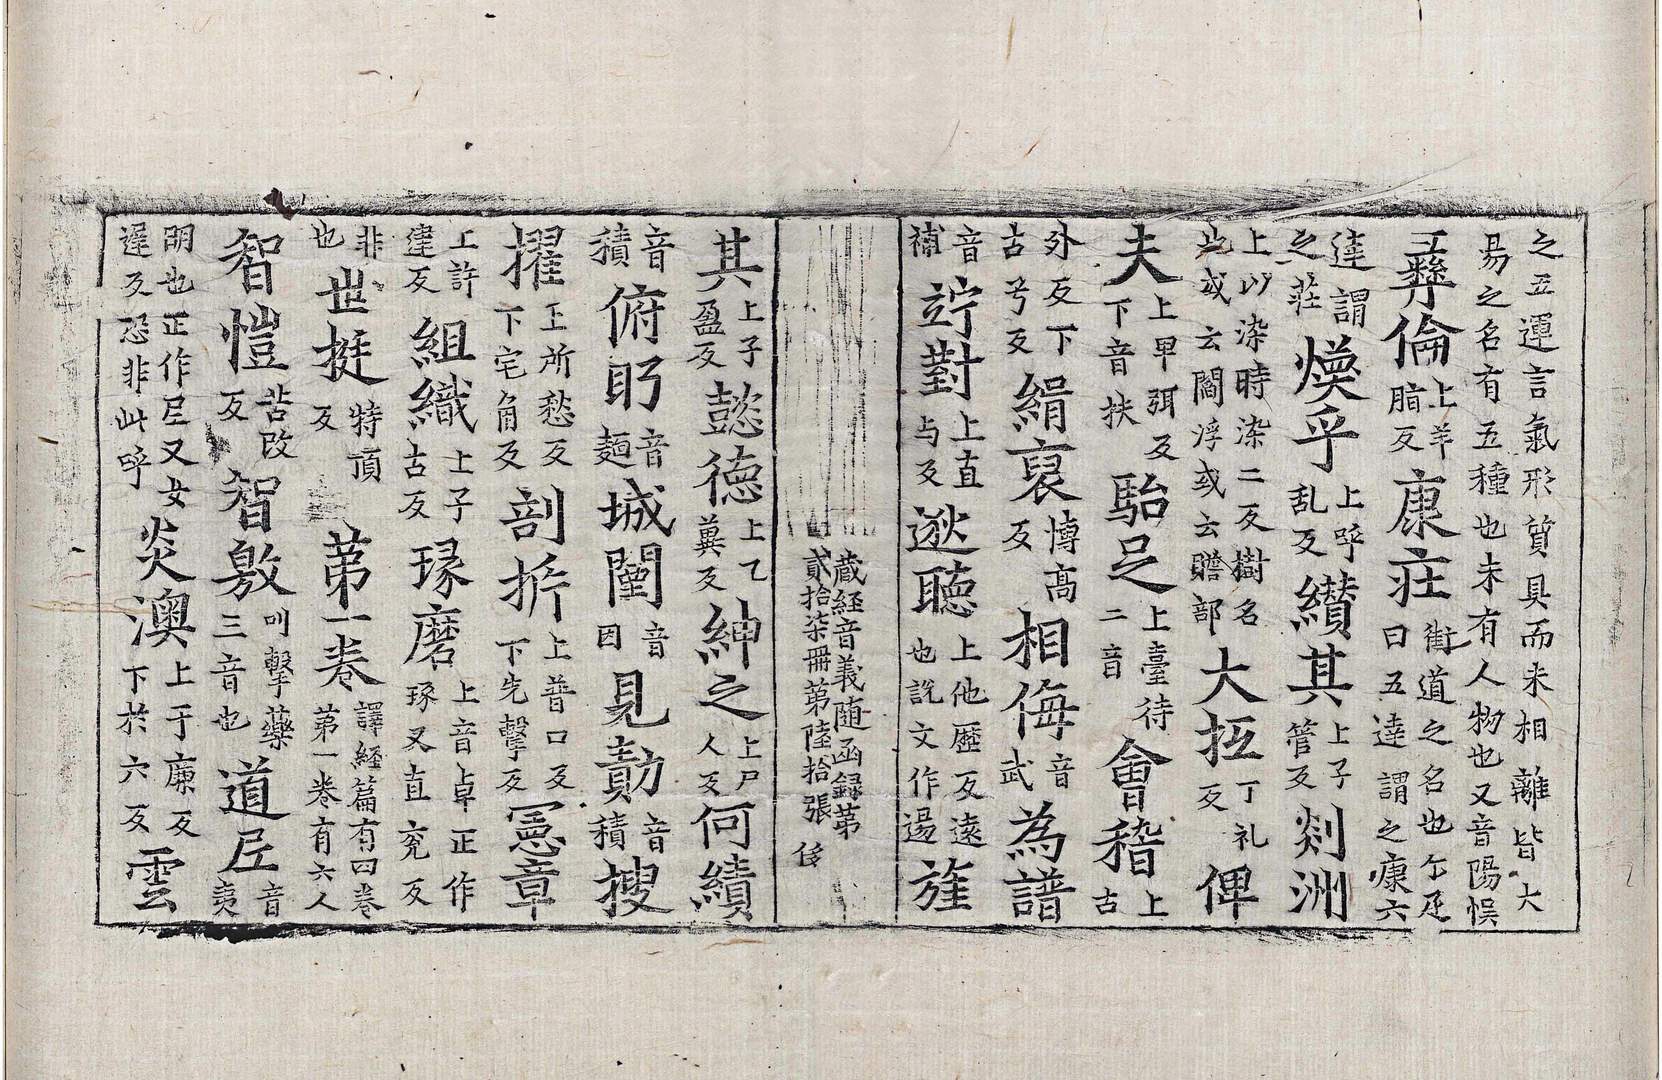 之五運言氣形質具而未相離皆大
易之名有五種也未有人物也又音陽悮
彝倫上羊脂反康莊街道之名也尒疋曰五達謂之康六
達謂之莊煥乎上呼乱反纘其上子管反剡洲
上以染時染二反樹名此或云閻浮或云贍部大抵丁礼反俾
夫上卑弭反下音扶駘足上臺待二音會稽上古
外反下古兮反緝裒博高反相侮音武為譜
音補竚對上直与反逖聽上他歷反遠也說文作逿旌
蔵経音義随函録第
貳拾柒冊第陸拾張
其上子盈反懿德上乙冀反紳之上尸人反何績
音積俯眄音麵城闉音因見勣音積搜
擢上所愁反下宅角反剖㭊上普口反下先擊反憲章
上許建反組織上子古反琢磨上音卓正作琢又直兖反
非也世挺特頂反第一卷譯經篇有四卷第一卷有六人
智愷苦改反智敫叫擊藥三音也道𡰱音夷
明也正作𡰱又女遅反恐非此呼炎澳上于廉反下於六反雲